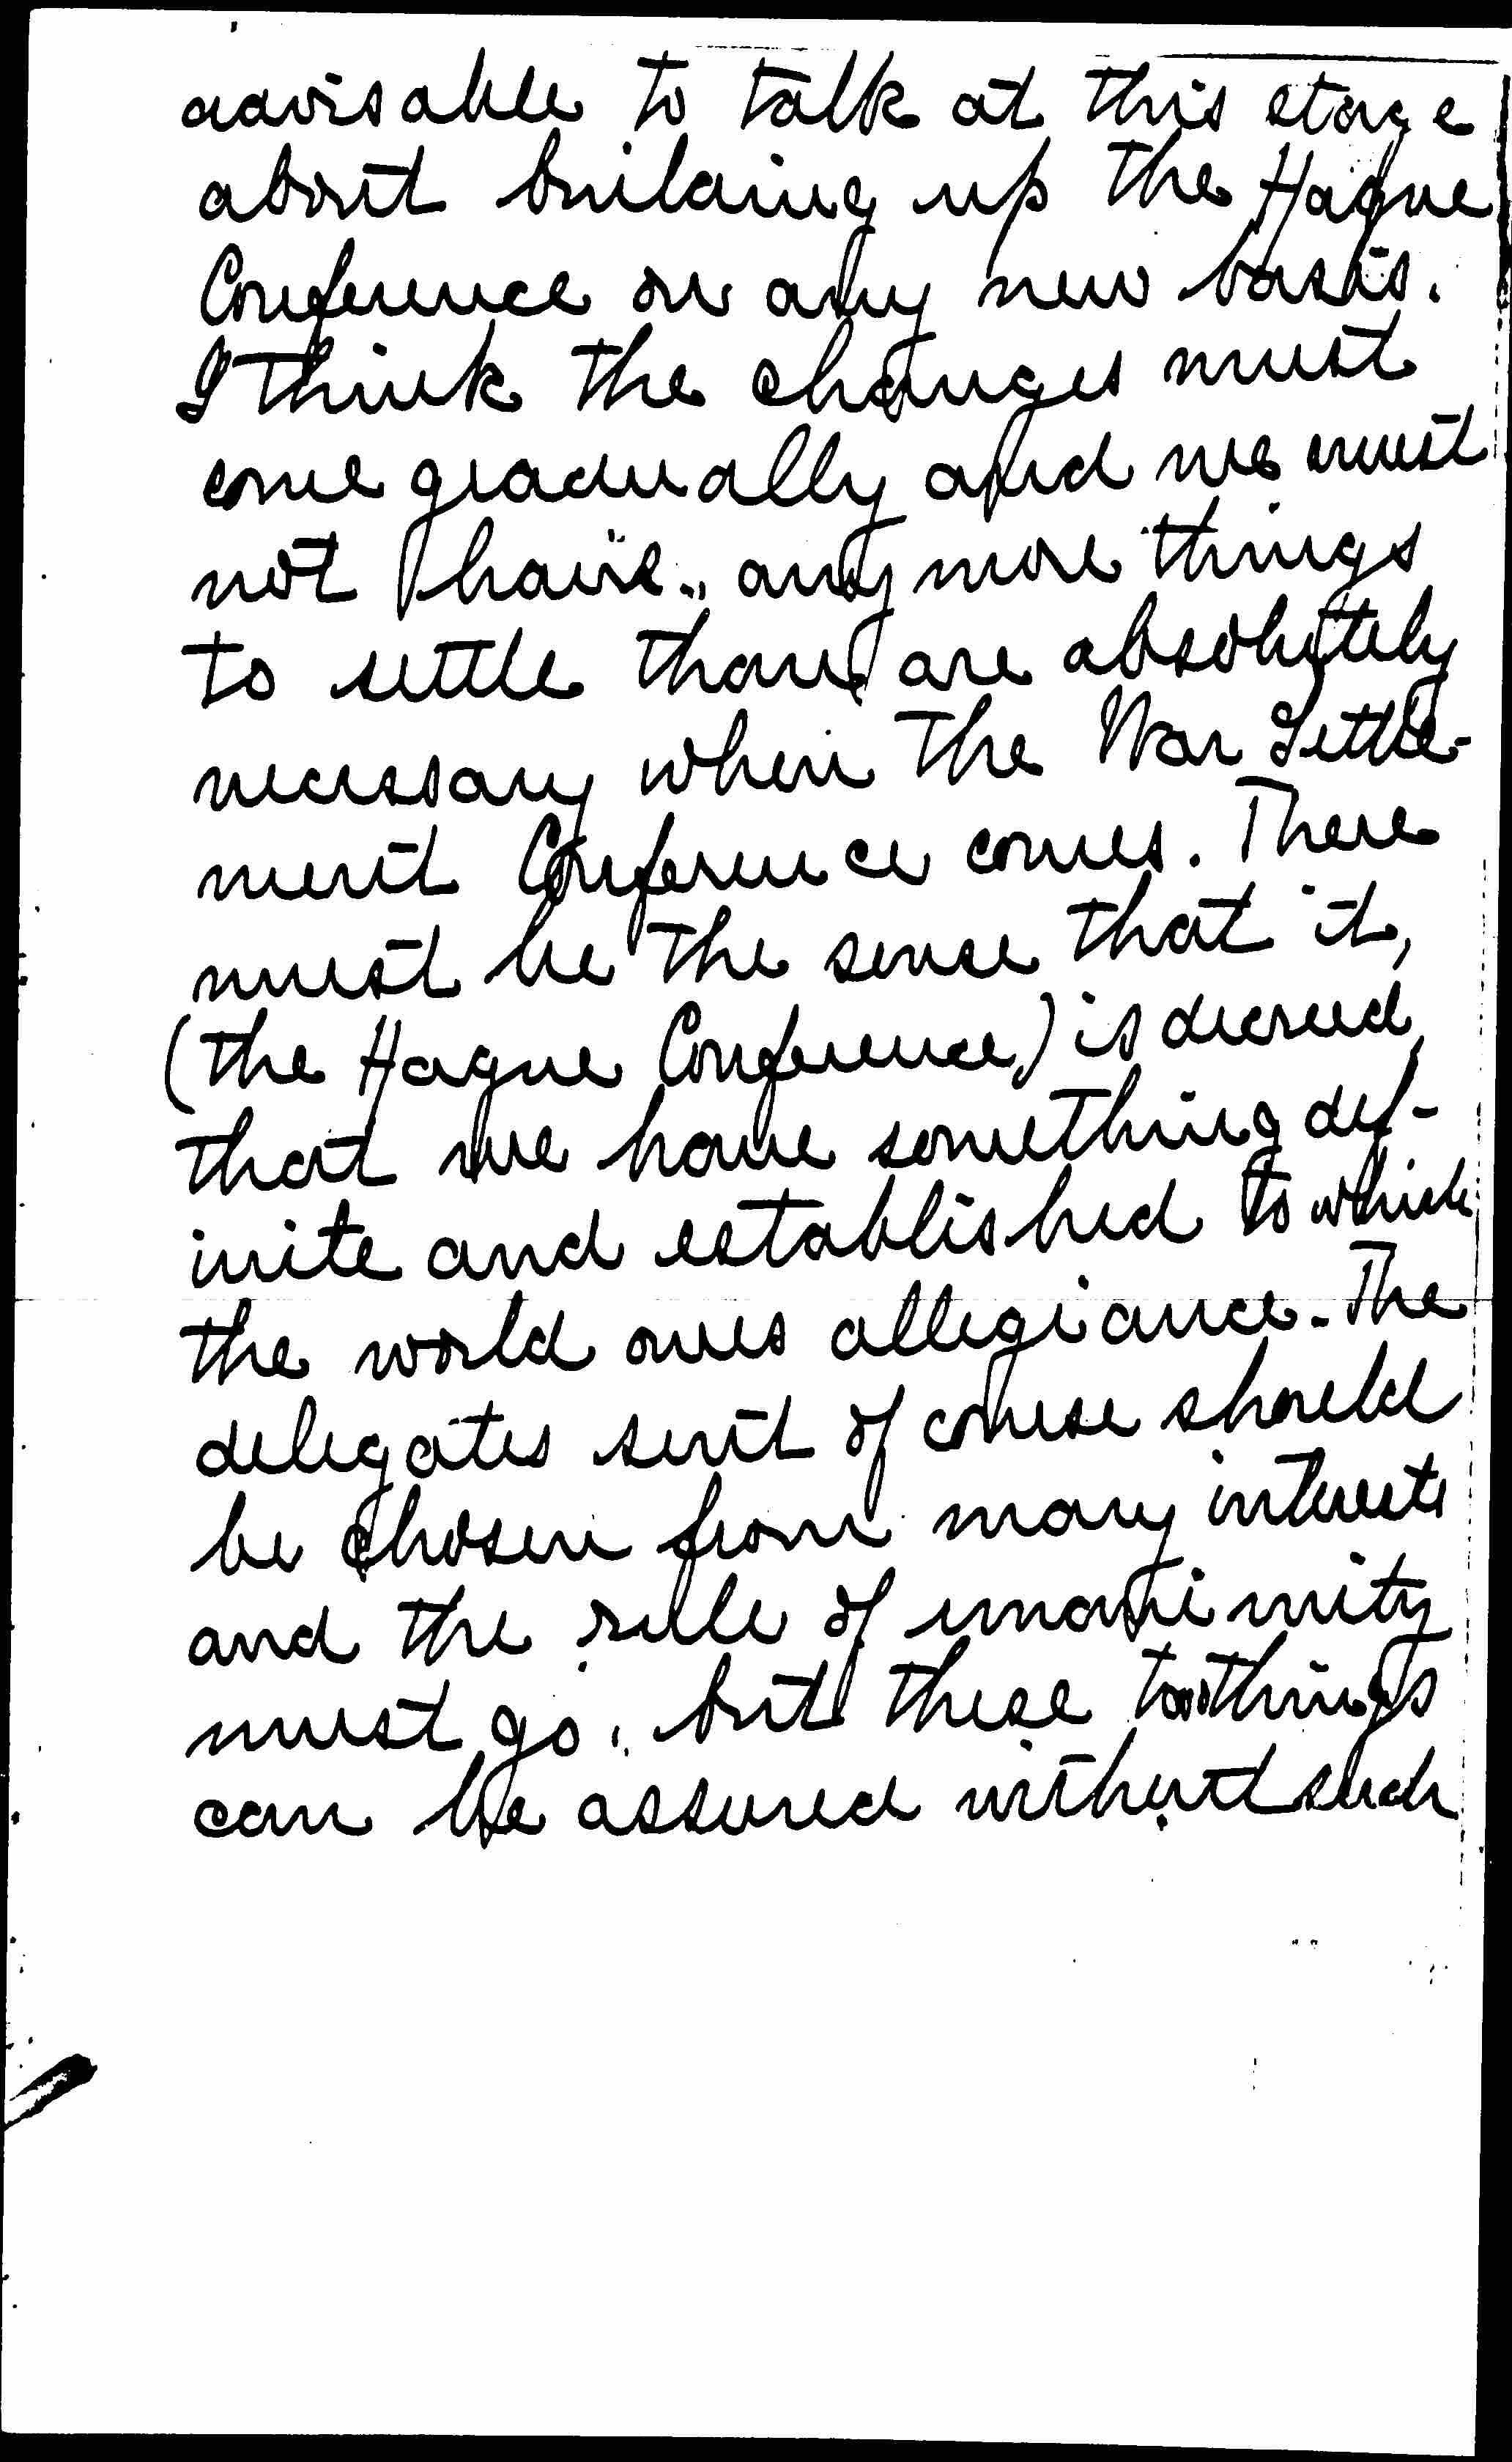 advisable to talk at this stage
about building up the Hague
Conference on any new basis.
I think the changes must
come gradually and we must
not have any more things
to settle than are absolutely
necessary when the War Settle-
ment Conference comes. There
must be the sense that it,
(the Hague Conference) is decreed,
that we have something def-
inite and established to which
the world owes allegiance. The
delegates sent of course should
be chosen from many interests
and the rule of unanimity
must go, but these two things
can be assured without such